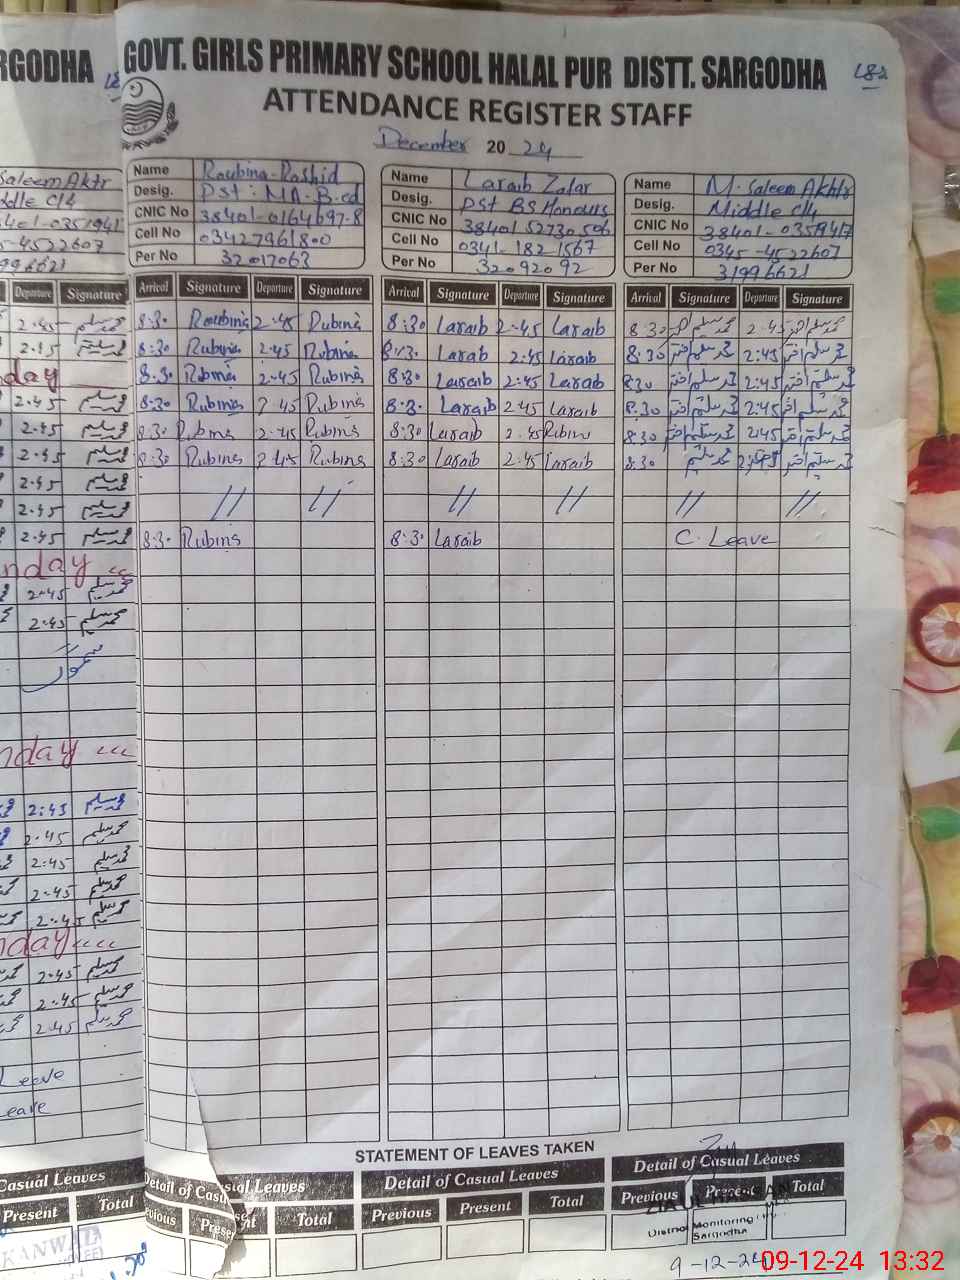 RGODHA
GOVT. GIRLS PRIMARY SCHOOL HALAL PUR DISTT. SARGODHA
ATTENDANCE REGISTER STAFF
December 2024
Name Roubina Rashid
Desig. PST: MA. B-ed
CNIC No 38401-0164697-8
Cell No 03427961800
Per No 32017063
Name Laraib Zafar
Desig. PST BS Honours
CNIC No 3840152730506
Cell No 0341-1821567
Per No 32092092
Name M. Saleem Akhtr
Desig. Middle C/4
CNIC No 38401-0351941
Cell No 0345-4522607
Per No 31996621
Arrival Signature Departure Signature Arrival Signature Departure Signature Arrival Signature Departure Signature
8:30 Roubina 2-45 Rubina 8:30 Laraib 2-45 Laraib 8:30 محمد سلیم اختر 2:45 محمد سلیم اختر
8:30 Rubina 2:45 Rubina 8:30 Laraib 2:45 Laraib 8:30 محمد سلیم اختر 2:45 محمد سلیم اختر
8:30 Rubina 2-45 Rubina 8:30 Laraib 2:45 Laraib 8:30 محمد سلیم اختر 2:45 محمد سلیم اختر
8:30 Rubina 2 45 Rubina 8:30 Laraib 2:45 Laraib 8:30 محمد سلیم اختر 2:45 محمد سلیم اختر
8:30 Rubina 2:45 Rubina 8:30 Laraib 2:45 Rubina 8:30 محمد سلیم اختر 2:45 محمد سلیم اختر
8:30 Rubina 2:45 Rubina 8:30 Laraib 2:45 Laraib 8:30 محمد سلیم 2:45 محمد سلیم اختر
// // // // // //
8:30 Rubina 8:30 Laraib C. Leave
STATEMENT OF LEAVES TAKEN
Detail of Casual Leaves Detail of Casual Leaves Detail of Casual Leaves
Previous Present Total Previous Present Total Previous Present Total
District Monitoring
Sargodha
9-12-24
09-12-24 13:32
Saleem Akhtr
ddle C/4
8401-0351941
5-4522607
996621
Departure Signature
2-45 محمد سلیم
2-45 محمد سلیم
nday
2-45 محمد سلیم
2-45 محمد سلیم
2-45 محمد سلیم
2-45 محمد سلیم
2-45 محمد سلیم
2-45 محمد سلیم
nday
2-45 محمد سلیم
2-45 محمد سلیم
nday
2:45 محمد سلیم
2-45 محمد سلیم
2:45 محمد سلیم
2-45 محمد سلیم
2-45 محمد سلیم
nday
2-45 محمد سلیم
2-45 محمد سلیم
2-45 محمد سلیم
Leave
Leave
Casual Leaves
Present Total
KANWAL